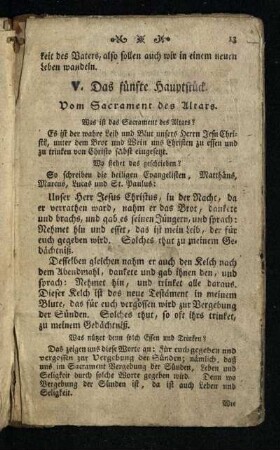 13
keit des Vaters, also sollen auch wir in einem neuen
Leben wandeln.
V. Das fünfte Hauptstück.
Vom Sacrament des Altars.
Was ist das Sacrament des Altars?
Es ist der wahre Leib und Blut unsers Herrn Jesu Chri-
sti, unter dem Brot und Wein uns Christen zu essen und
zu trinken von Christo selbst eingesetzt.
Wo stehet das geschrieben?
So schreiben die heiligen Evangelisten, Matthäus,
Marcus, Lucas und St. Paulus:
Unser Herr Jesus Christus, in der Nacht, da
er verrathen ward, nahm er das Brot, dankete
und brachs, und gab es seinen Jüngern, und sprach:
Nehmet hin und esset, das ist mein Leib, der für
euch gegeben wird. Solches thut zu meinem Ge-
dächtniß.
Desselben gleichen nahm er auch den Kelch nach
dem Abendmahl, dankete und gab ihnen den, und
sprach: Nehmet hin, und trinket alle daraus.
Dieser Kelch ist das neue Testament in meinem
Blute, das für euch vergossen wird zur Vergebung
der Sünden. Solches thut, so oft ihrs trinket,
zu meinem Gedächtniß.
Was nützet denn solch Essen und Trinken?
Das zeigen uns diese Worte an: Für euch gegeben und
vergossen zur Vergebung der Sünden; nämlich, daß
uns im Sacrament Vergebung der Sünden, Leben und
Seligkeit durch solche Worte gegeben wird. Denn wo
Vergebung der Sünden ist, da ist auch Leben und
Seligkeit.
Wie